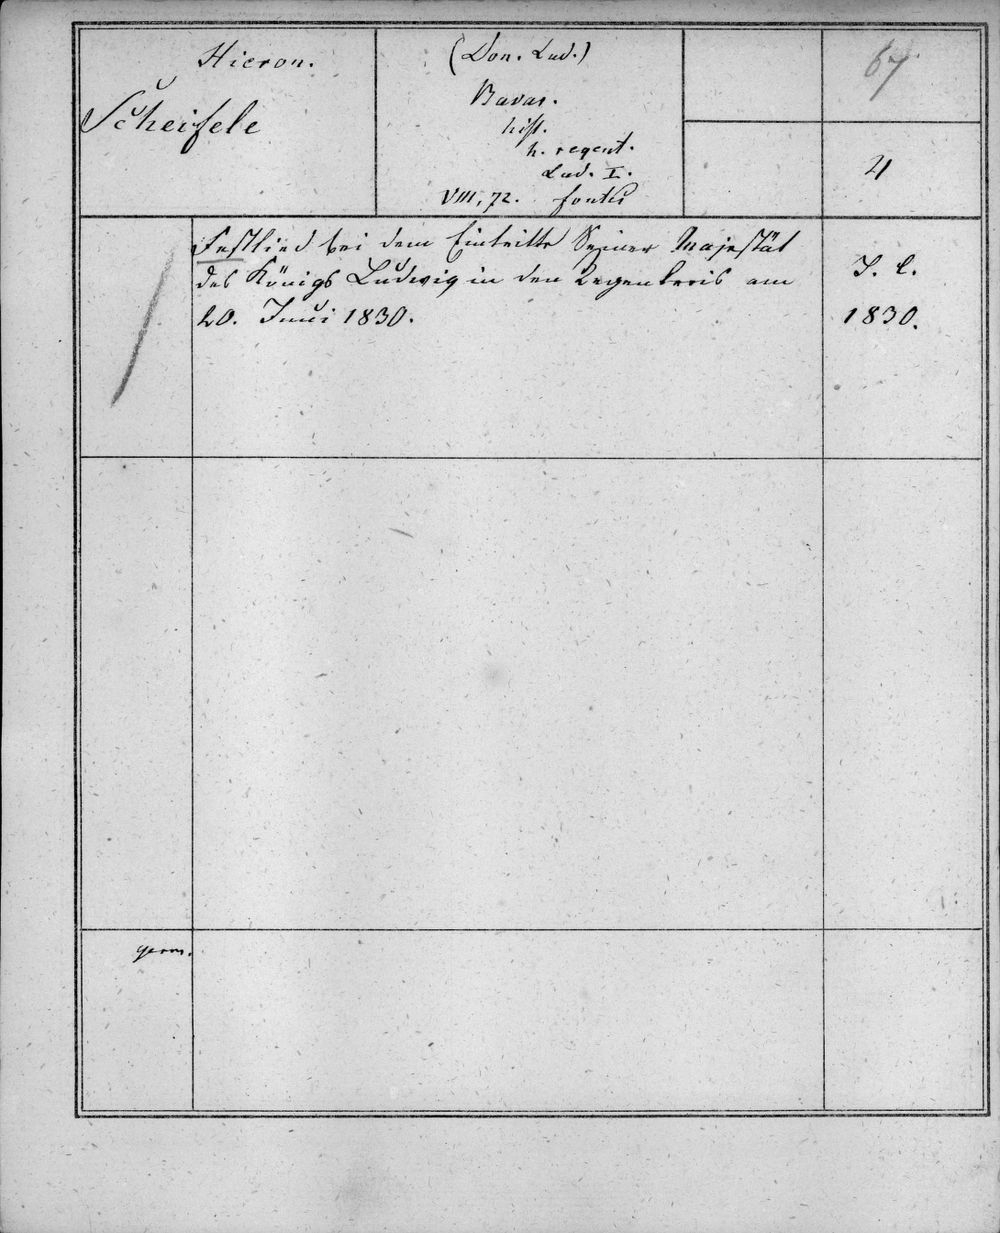 Hieron.
Scheifele
(Don. Lud.)
Bavar.
hist.
h. regent.
Lud. I.
VIII, 72. fontes
67
4
Festlied bei dem Eintritte Seiner Majestät
des Königs Ludwig in den Regenkreis am
20. Juni 1830.
S. l.
1830.
germ.